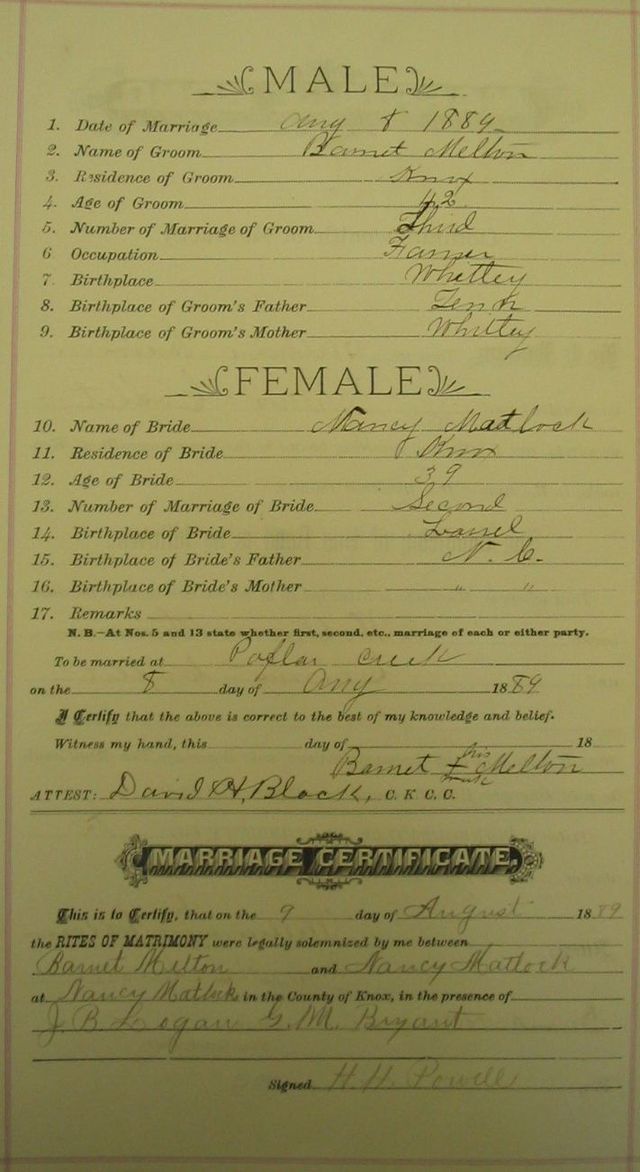 MALE
1. Date of Marriage Aug 8 1889
2. Name of Groom Barnet Melton
3. Residence of Groom Knox
4. Age of Groom 42
5. Number of Marriage of Groom Third
6 Occupation Farmer
7. Birthplace Whitley
8. Birthplace of Groom's Father Tenn
9. Birthplace of Groom's Mother Whitley
FEMALE
10. Name of Bride Nancy Matlock
11. Residence of Bride Knox
12. Age of Bride 39
13. Number of Marriage of Bride Second
14. Birthplace of Bride Laurel
15. Birthplace of Bride's Father N. C.
16. Birthplace of Bride's Mother " "
17. Remarks
N. B.—At Nos. 5 and 13 state whether first, second, etc., marriage of each or either party.
To be married at Poplar Creek
on the 8 day of Aug 1889
I Certify that the above is correct to the best of my knowledge and belief.
Witness my hand, this day of 18
Barnet his mark Melton
ATTEST: David H. Black, C. K. C. C.
MARRIAGE CERTIFICATE.
This is to Certify, that on the 9 day of August 1889
the RITES OF MATRIMONY were legally solemnized by me between
Barnet Melton and Nancy Matlock
at Nancy Matlock in the County of Knox, in the presence of
J B Logan G. M. Bryant
Signed H. H. Powell